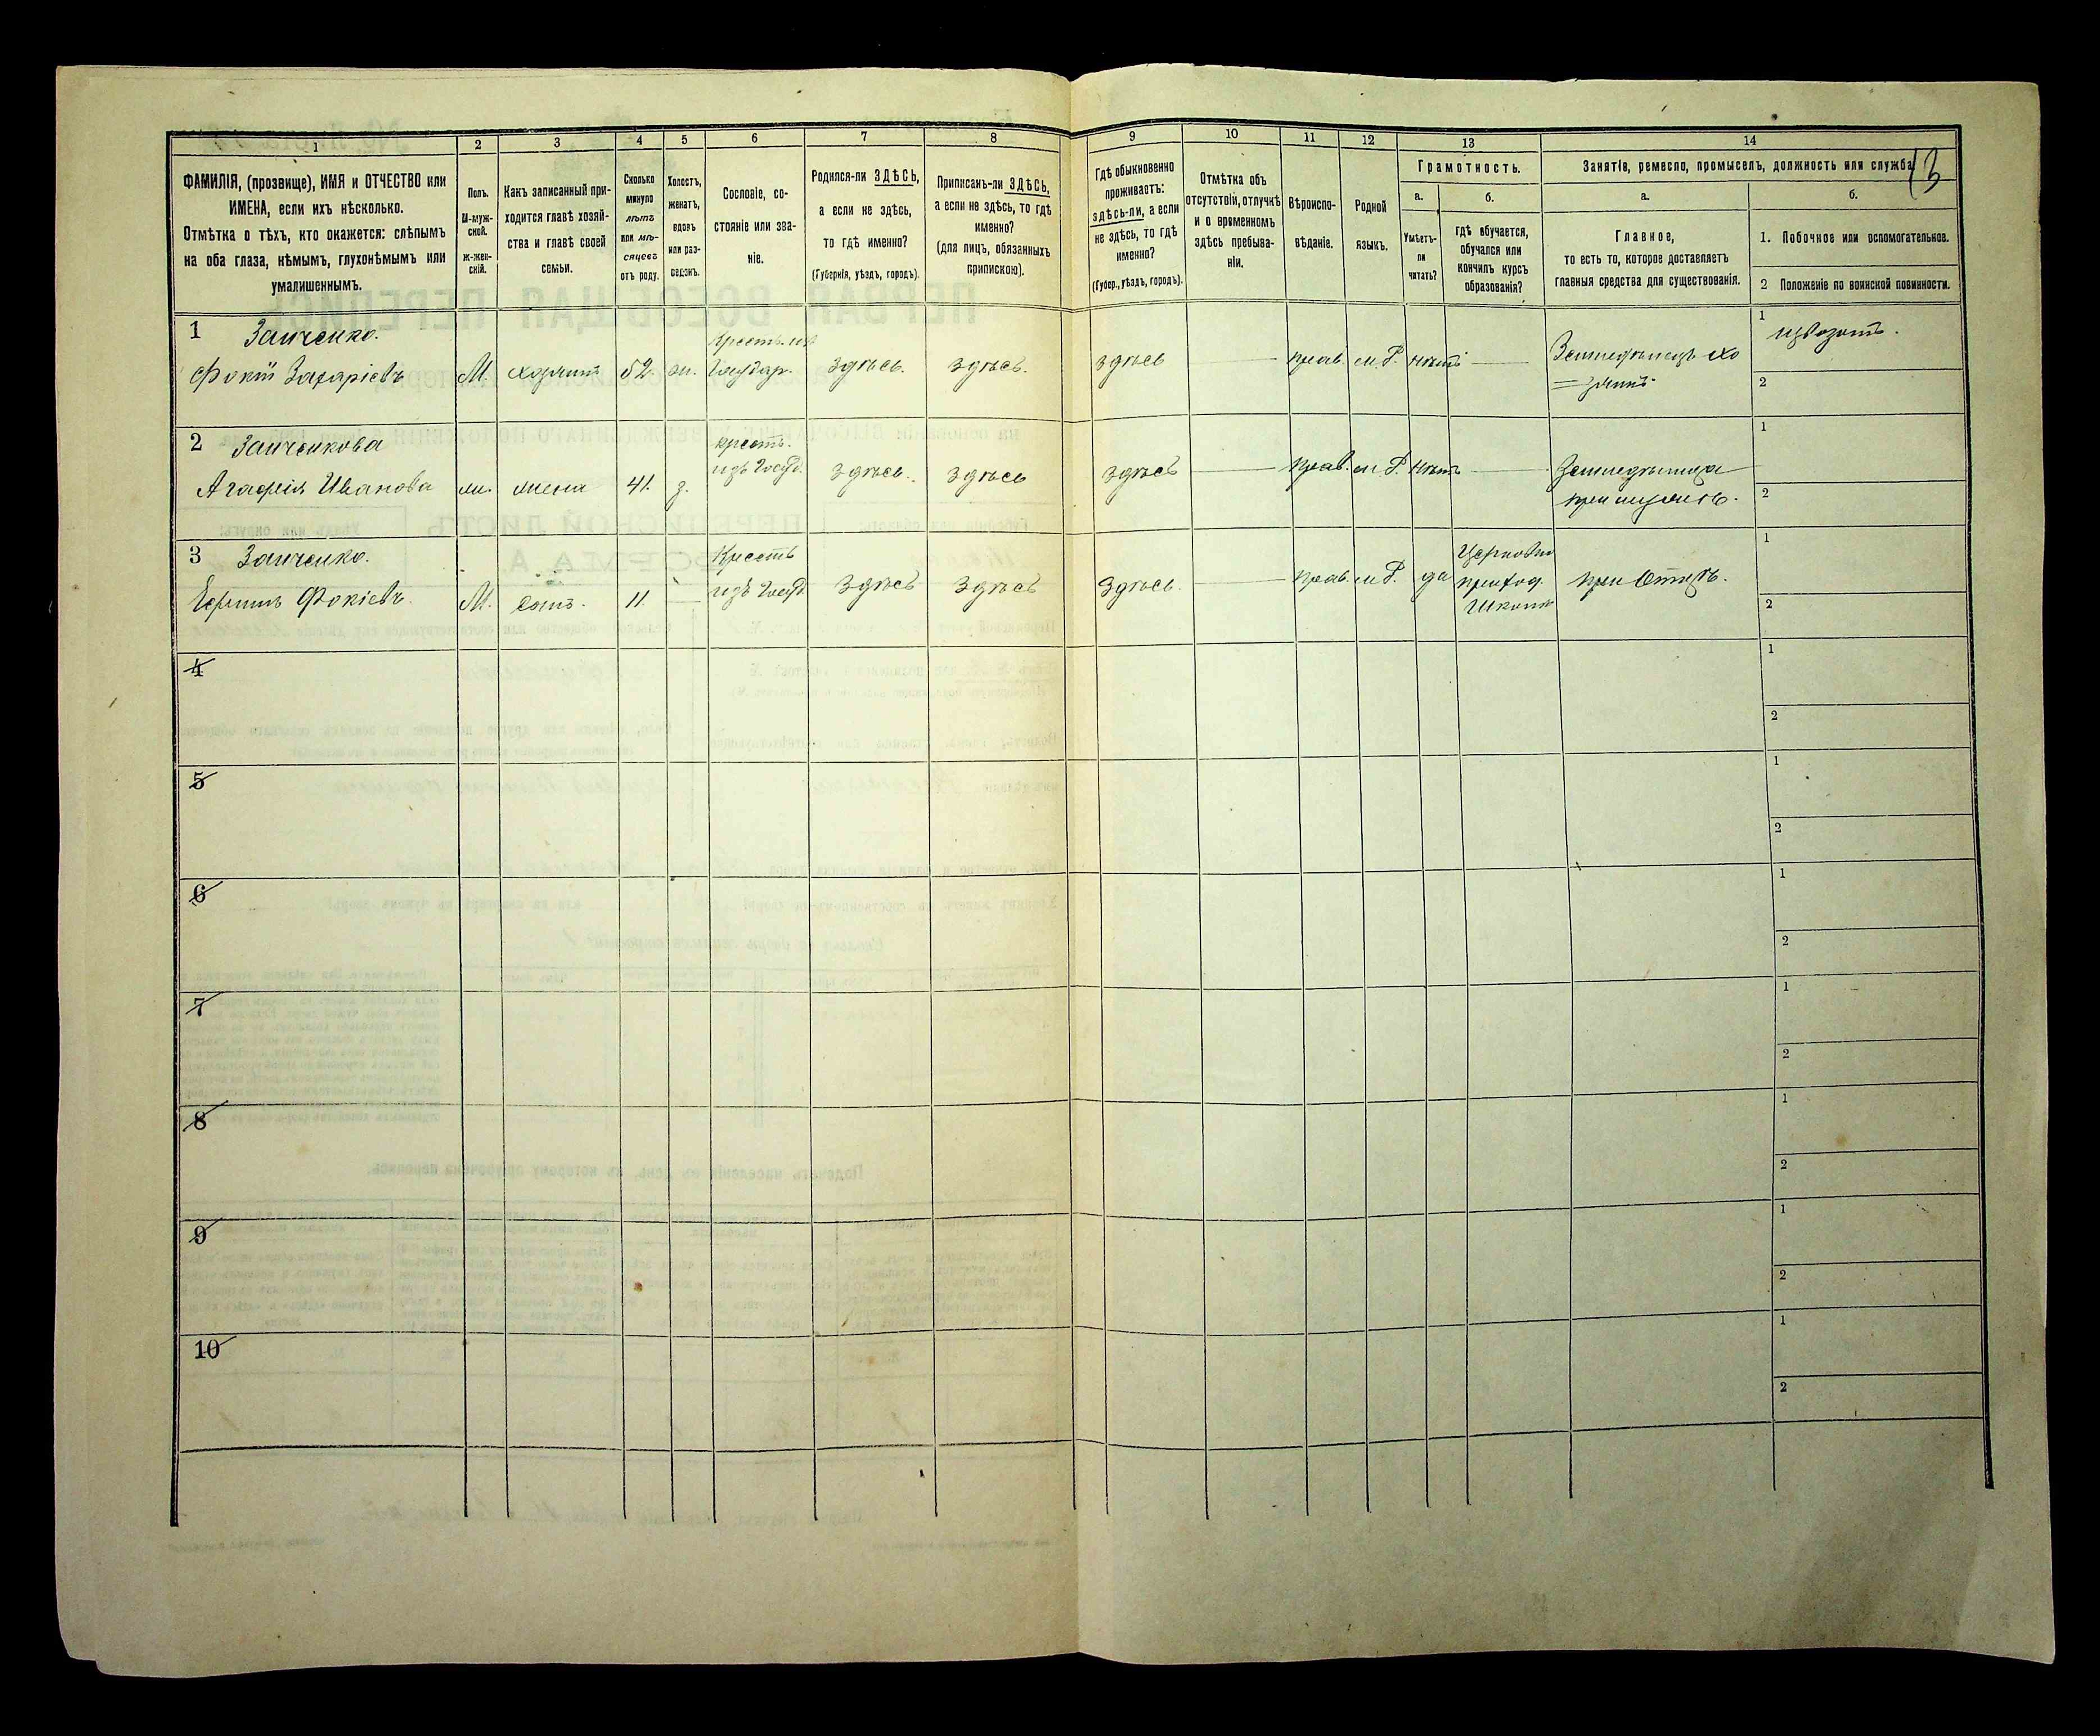 1 2 3 4 5 6 7 8 9 10 11 12 13 14
ФАМИЛІЯ, (прозвище), ИМЯ и ОТЧЕСТВО или
ИМЕНА, если ихъ нѣсколько.
Отмѣтка о тѣхъ, кто окажется: слѣпымъ
на оба глаза, нѣмымъ, глухонѣмымъ или
умалишеннымъ.
Полъ.
М-муж-
ской.
ж-жен-
скій.
Какъ записанный при-
ходится главѣ хозяй-
ства и главѣ своей
семьи.
Сколько
минуло
лѣтъ
или мѣ-
сяцевъ
отъ роду.
Холостъ,
женатъ,
вдовъ
или раз-
веденъ.
Сословіе, со-
стояніе или зва-
ніе.
Родился-ли ЗДѢСЬ,
а если не здѣсь,
то гдѣ именно?
(Губернія, уѣздъ, городъ).
Приписанъ-ли ЗДѢСЬ,
а если не здѣсь, то гдѣ
именно?
(для лицъ, обязанныхъ
припискою).
Гдѣ обыкновенно
проживаетъ:
здѣсь-ли, а если
не здѣсь, то гдѣ
именно?
(Губер., уѣздъ, городъ).
Отмѣтка объ
отсутствіи, отлучкѣ
и о временномъ
здѣсь пребыва-
ніи.
Вѣроиспо-
вѣданіе.
Родной
языкъ.
Грамотность.
а.
Умѣетъ-
ли
читать?
б.
гдѣ обучается,
обучался или
кончилъ курсъ
образованія?
Занятія, ремесло, промыселъ, должность или служба
13
а.
Главное,
то есть то, которое доставляетъ
главныя средства для существованія.
б.
1. Побочное или вспомогательное.
2 Положеніе по воинской повинности.
1 Заиченко.
Фокій Захаріевъ М. 52. Государ. здѣсь. здѣсь. здѣсь прав. м. Р. нѣтъ
1 извозомъ.
2
2 Заиченкова
Агафія Иванова ж. жена 41. з. крест. изъ Госуд. здѣсь. здѣсь здѣсь прав. м. Р. нѣтъ
1
2
3 Заиченко.
Фокіевъ. М. Сынъ. 11. Крест. изъ Госуд. здѣсь здѣсь здѣсь. прав. м. Р. да Церковно приход. Школѣ при Отцѣ.
1
2
4 1
2
5 1
2
6 1
2
7 1
2
8 1
2
9 1
2
10 1
2